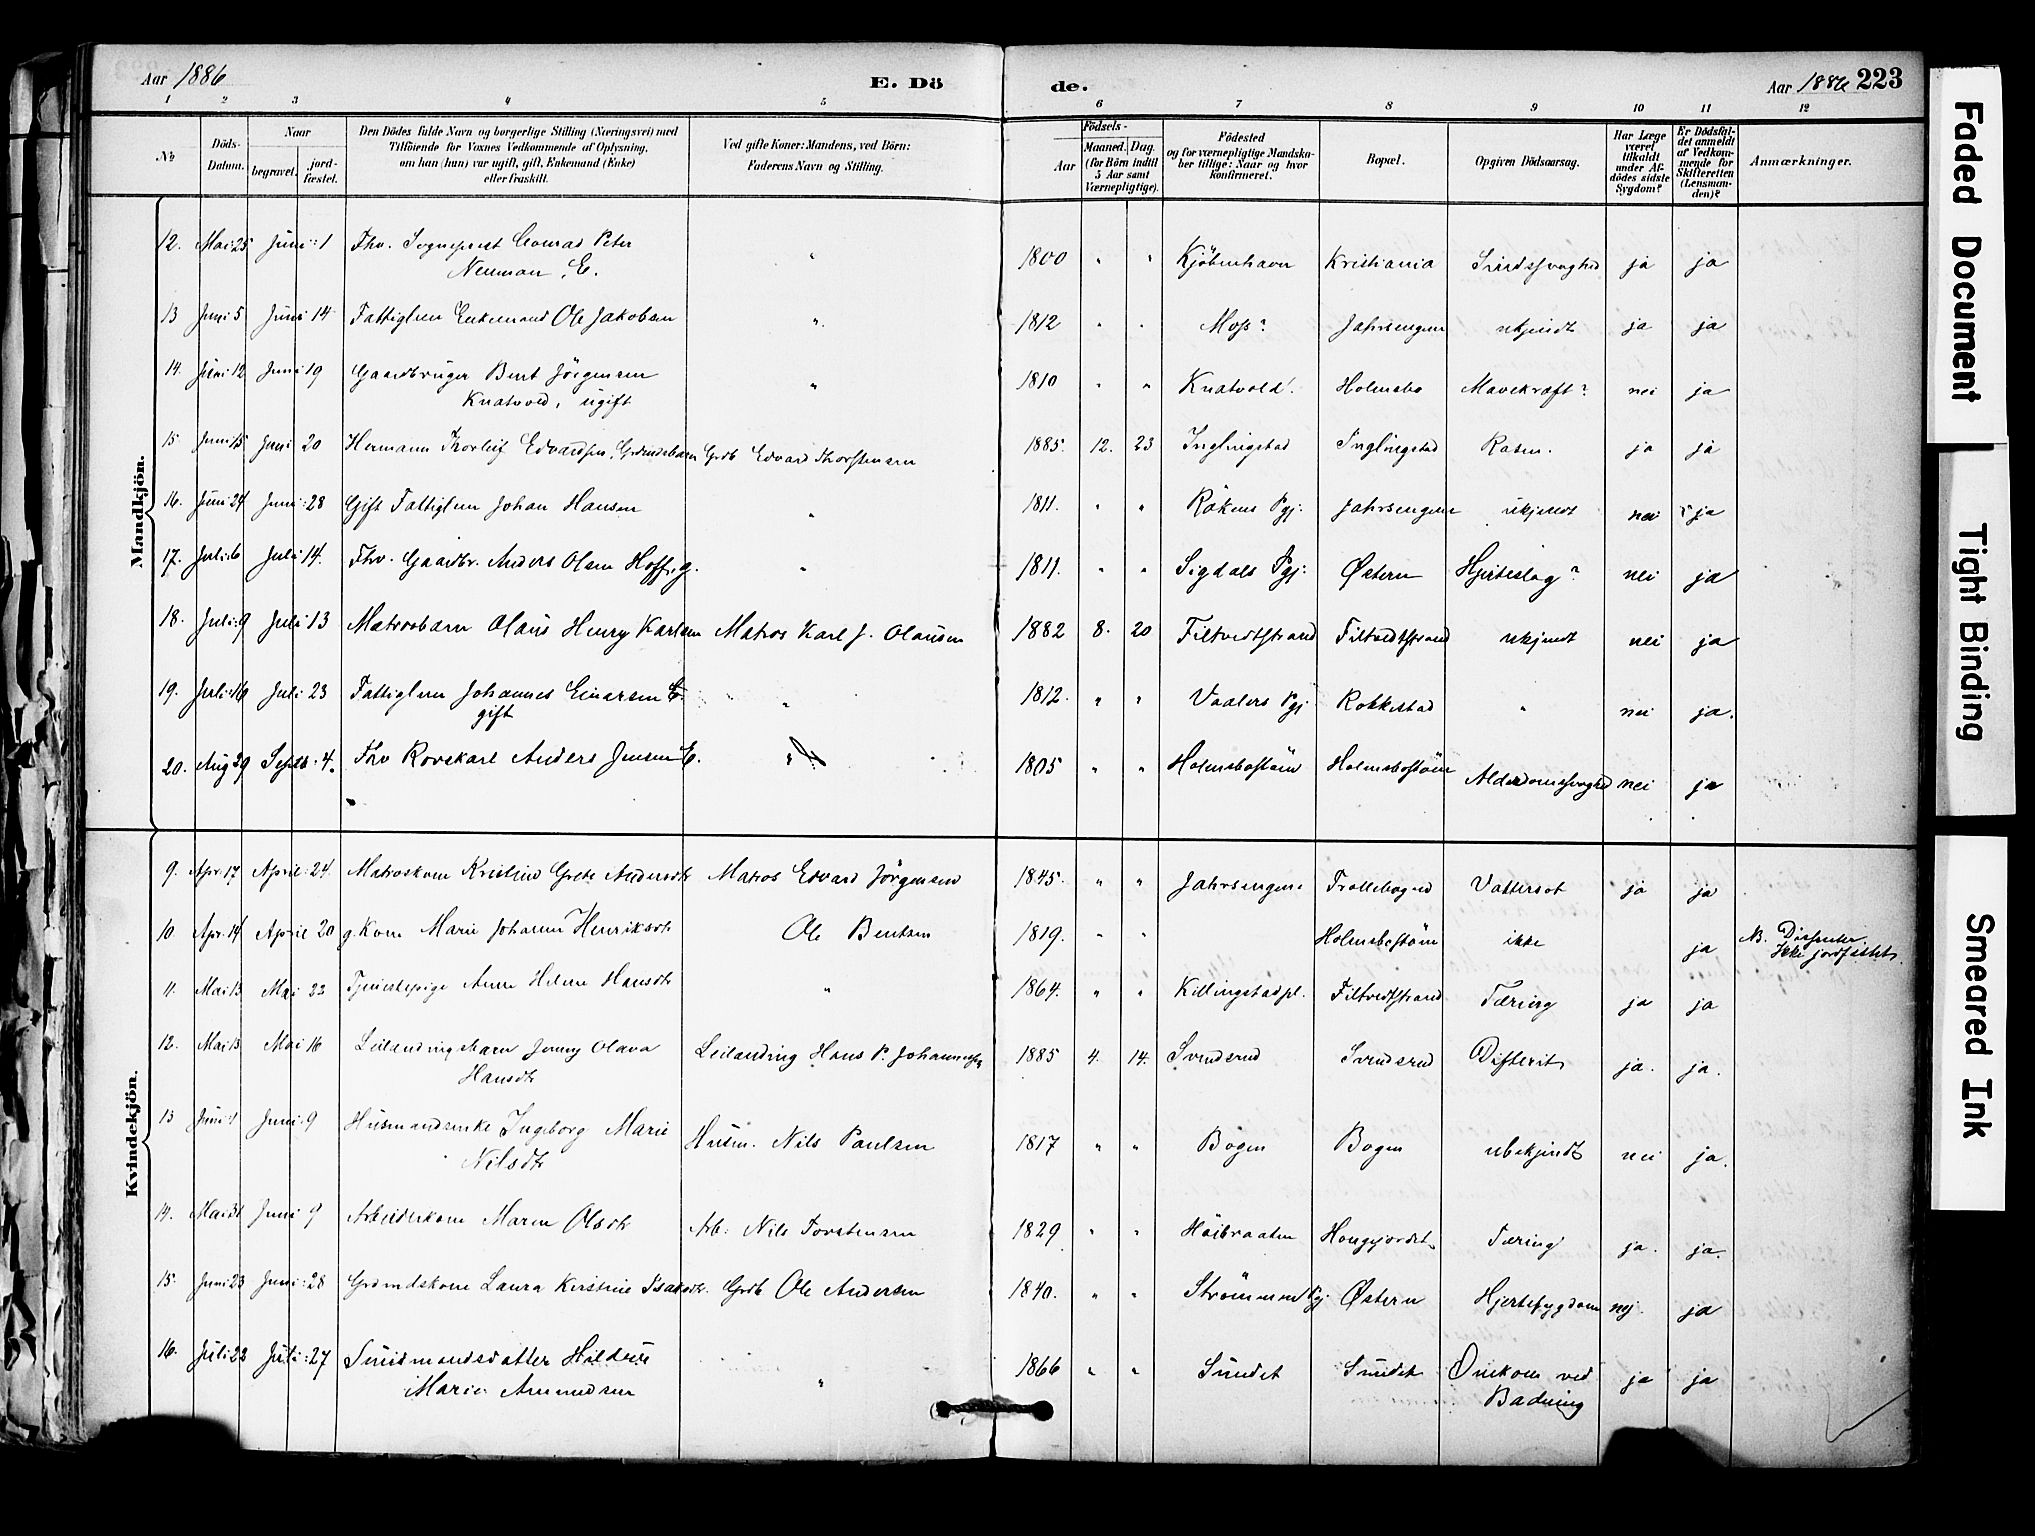 Aar 1886
E. Dö
de.
Aar 1886 223
1 2 3 4 5 6 7 8 9 10 11 12
No
Döds-Datum.
Naar
begravet.
jord-fæstet.
Den Dödes fulde Navn og borgerlige Stilling (Næringsvei) med
Tilföiende for Voxnes Vedkommende af Oplysning,
om han (hun) var ugift, gift, Enkemand (Enke)
eller fraskilt.
Ved gifte Koner: Mandens, ved Börn:
Faderens Navn og Stilling.
Födsels-
Aar
Maaned. Dag.
(for Börn indtil
5 Aar samt
Værnepligtige).
Födested
og for værnepligtige Mandska-
ber tillige: Naar og hvor
konfirmeret.
Bopæl.
Opgiven Dödsaarsag.
Har Læge
været
tilkaldt
under Af-
dödes sidste
Sygdom?
Er Dödsfal-
det anmeldt
af Vedkom-
mende for
Skifteretten
(Lensman-
den)?
Anmærkninger.
Mandkjön.
12. Mai 25 Juni 1 Fhv. Sogneprest Conrad Peter
Neuman, E. " 1800 " " Kjöbenhavn Kristiania Sindssvaghed ja ja
13 Juni 5 Juni 14 Fattiglem Enkemand Ole Jakobsen " 1812 " " Moss? Jahrsengen ukjendt ja ja
14. Juni 12 Juni 19 Gaardbruger Bent Jörgensen
Knatvold, ugift " 1810 " " Knatvold. Holmsbo Mavekræft? nei ja
15 Juni 15 Juni 20 Hermann Thorleif Edvardsen, Grdmdsbarn Grdb Edvard Thorstensen 1885. 12. 23 Inglingstad Inglingstad Rosen. ja ja
16. Juni 24 Juni 28 Gift Fattiglem Johan Hansen " 1811. " " Rökens Pgj. Jahrsengen ukjendt nei ja
17. Juli 6 Juli 14. Fhv. Gaardbr. Anders Olsen Hoff, g. " 1811. " " Sigdals Pgj. Østern Hjerteslag? nei ja
18. Juli 9 Juli 13 Matrosbarn Olaus Henry Karlsen Matros Karl J. Olausen 1882 8. 20 Filtvedtstrand Filtvedtstrand ukjendt nei ja
19. Juli 16 Juli 23 Fattiglem Johannes Einarsen E.
gift " 1812. " " Vaalers Pgj Rokkestad " nei ja.
20. Aug 29 Septb. 4. Fhv Rorskarl Anders Jensen E. " 1805 " " Holmsbostöen Holmsbostöen Alderdomssvaghed nei ja
Kvindekjön.
9. Apr. 17 April 24. Matroskone Kristine Grete Andersdtr Matros Edvard Jörgensen 1845. " " Jahrsengene Trollebogen Vattersot ja ja
10. Apr. 14 April 20 g. Kone Marie Johanne Henriksdtr Ole Bentsen 1819. " " Holmsbostöen ikke ja NB. Dissenter
Ikke jordfæstet.
11. Mai 13 Mai 23 Tjenestepige Anne Helene Hansdtr " 1864. " " Killingstadpl. Filtvedtstrand Tæring ja ja
12. Mai 13 Mai 16 Leilændingsbarn Jenny Olava
Hansdtr Leilænding Hans P. Johannessen 1885 4. 14. Svendsrud Svendsrud Difterit ja. ja.
13 Juni 1 Juni 9 Husmandsenke Ingeborg Marie
Nilsdtr Husm. Nils Paulsen 1817 " " Bogen Bogen ubekjendt nei ja.
14. Mai 31 Juni 9 Arbeiderkone Maren Olsdtr Arb. Nils Torstensen 1829 " " Höibraaten Haugjordet Tæring ja. ja.
15. Juni 23 Juni 28 Grdmdskone Laura Kirstine Isaksdtr. Grdb Ole Andersen 1840. " " Strömmens Pgj Østern Hjertesygdom nej. ja
16. Juli 22 Juli 27 Smedmandsdatter Hildur
Marie Amundsen " 1866 " " Sundet Sundet Omkom ved
Badning ja ja
Faded Document
Tight Binding
Smeared Ink